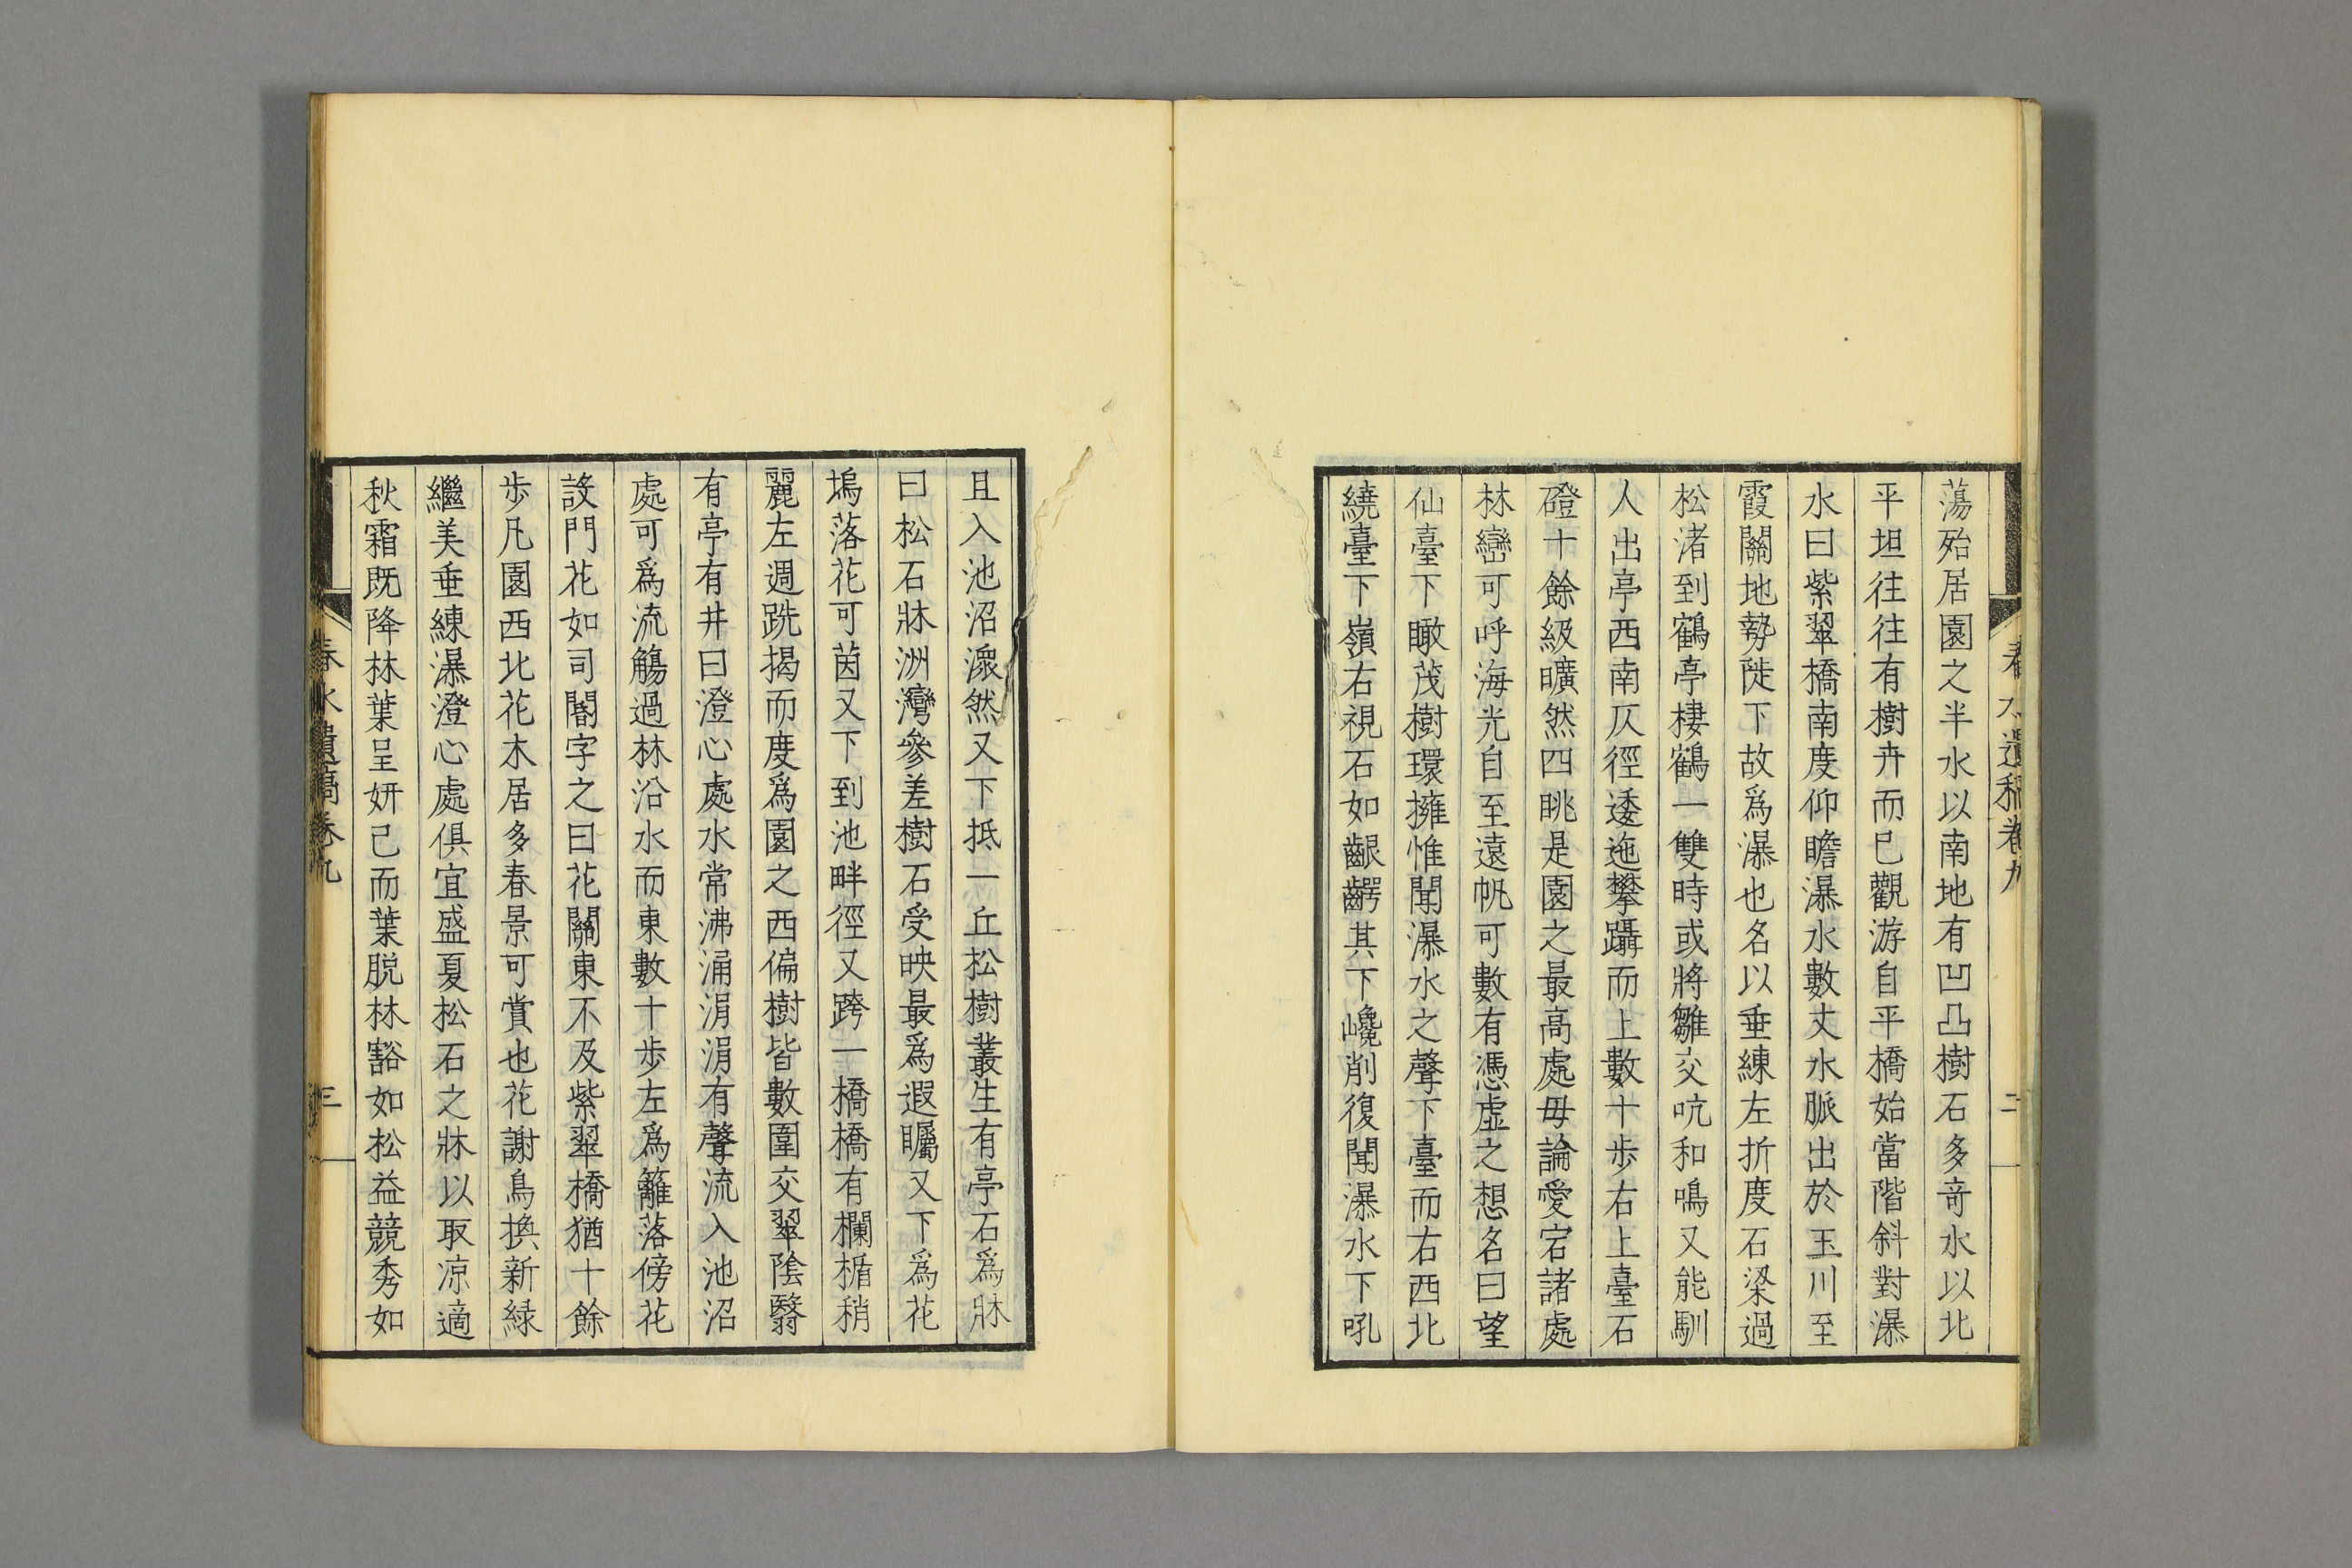 蕩殆居園之半水以南地有凹凸樹石多奇水以北
平坦往往有樹卉而已觀游自平橋始當階斜對瀑
水曰紫翠橋南度仰瞻瀑水數丈水脈出於玉川至
霞關地勢陡下故爲瀑也名以垂練左折度石梁過
松渚到鶴亭棲鶴一雙時或將雛交吭和鳴又能馴
人出亭西南仄徑逶迤攀躡而上數十歩右上臺石
磴十餘級曠然四眺是園之最高處毋論愛宕諸處
林巒可呼海光自至遠帆可數有憑虛之想名曰望
仙臺下瞰茂樹環擁惟聞瀑水之聲下臺而右西北
繞臺下嶺右視石如齦齶其下巉削復聞瀑水下吼
春水遺稿卷九
二
且入池沼潨然又下抵一丘松樹叢生有亭石爲牀
曰松石牀洲灣參差樹石受映最爲遐矚又下爲花
塢落花可茵又下到池畔徑又跨一橋橋有欄楯稍
麗左週跣揭而度爲園之西偏樹皆數圍交翠陰翳
有亭有井曰澄心處水常沸涌涓涓有聲流入池沼
處可爲流觴過林沿水而東數十歩左爲籬落傍花
設門花如司閽字之曰花關東不及紫翠橋猶十餘
歩凡園西北花木居多春景可賞也花謝鳥換新緑
繼美垂練瀑澄心處俱宜盛夏松石之牀以取凉適
秋霜既降林葉呈妍已而葉脱林豁如松益競秀如
春水遺稿卷九
三